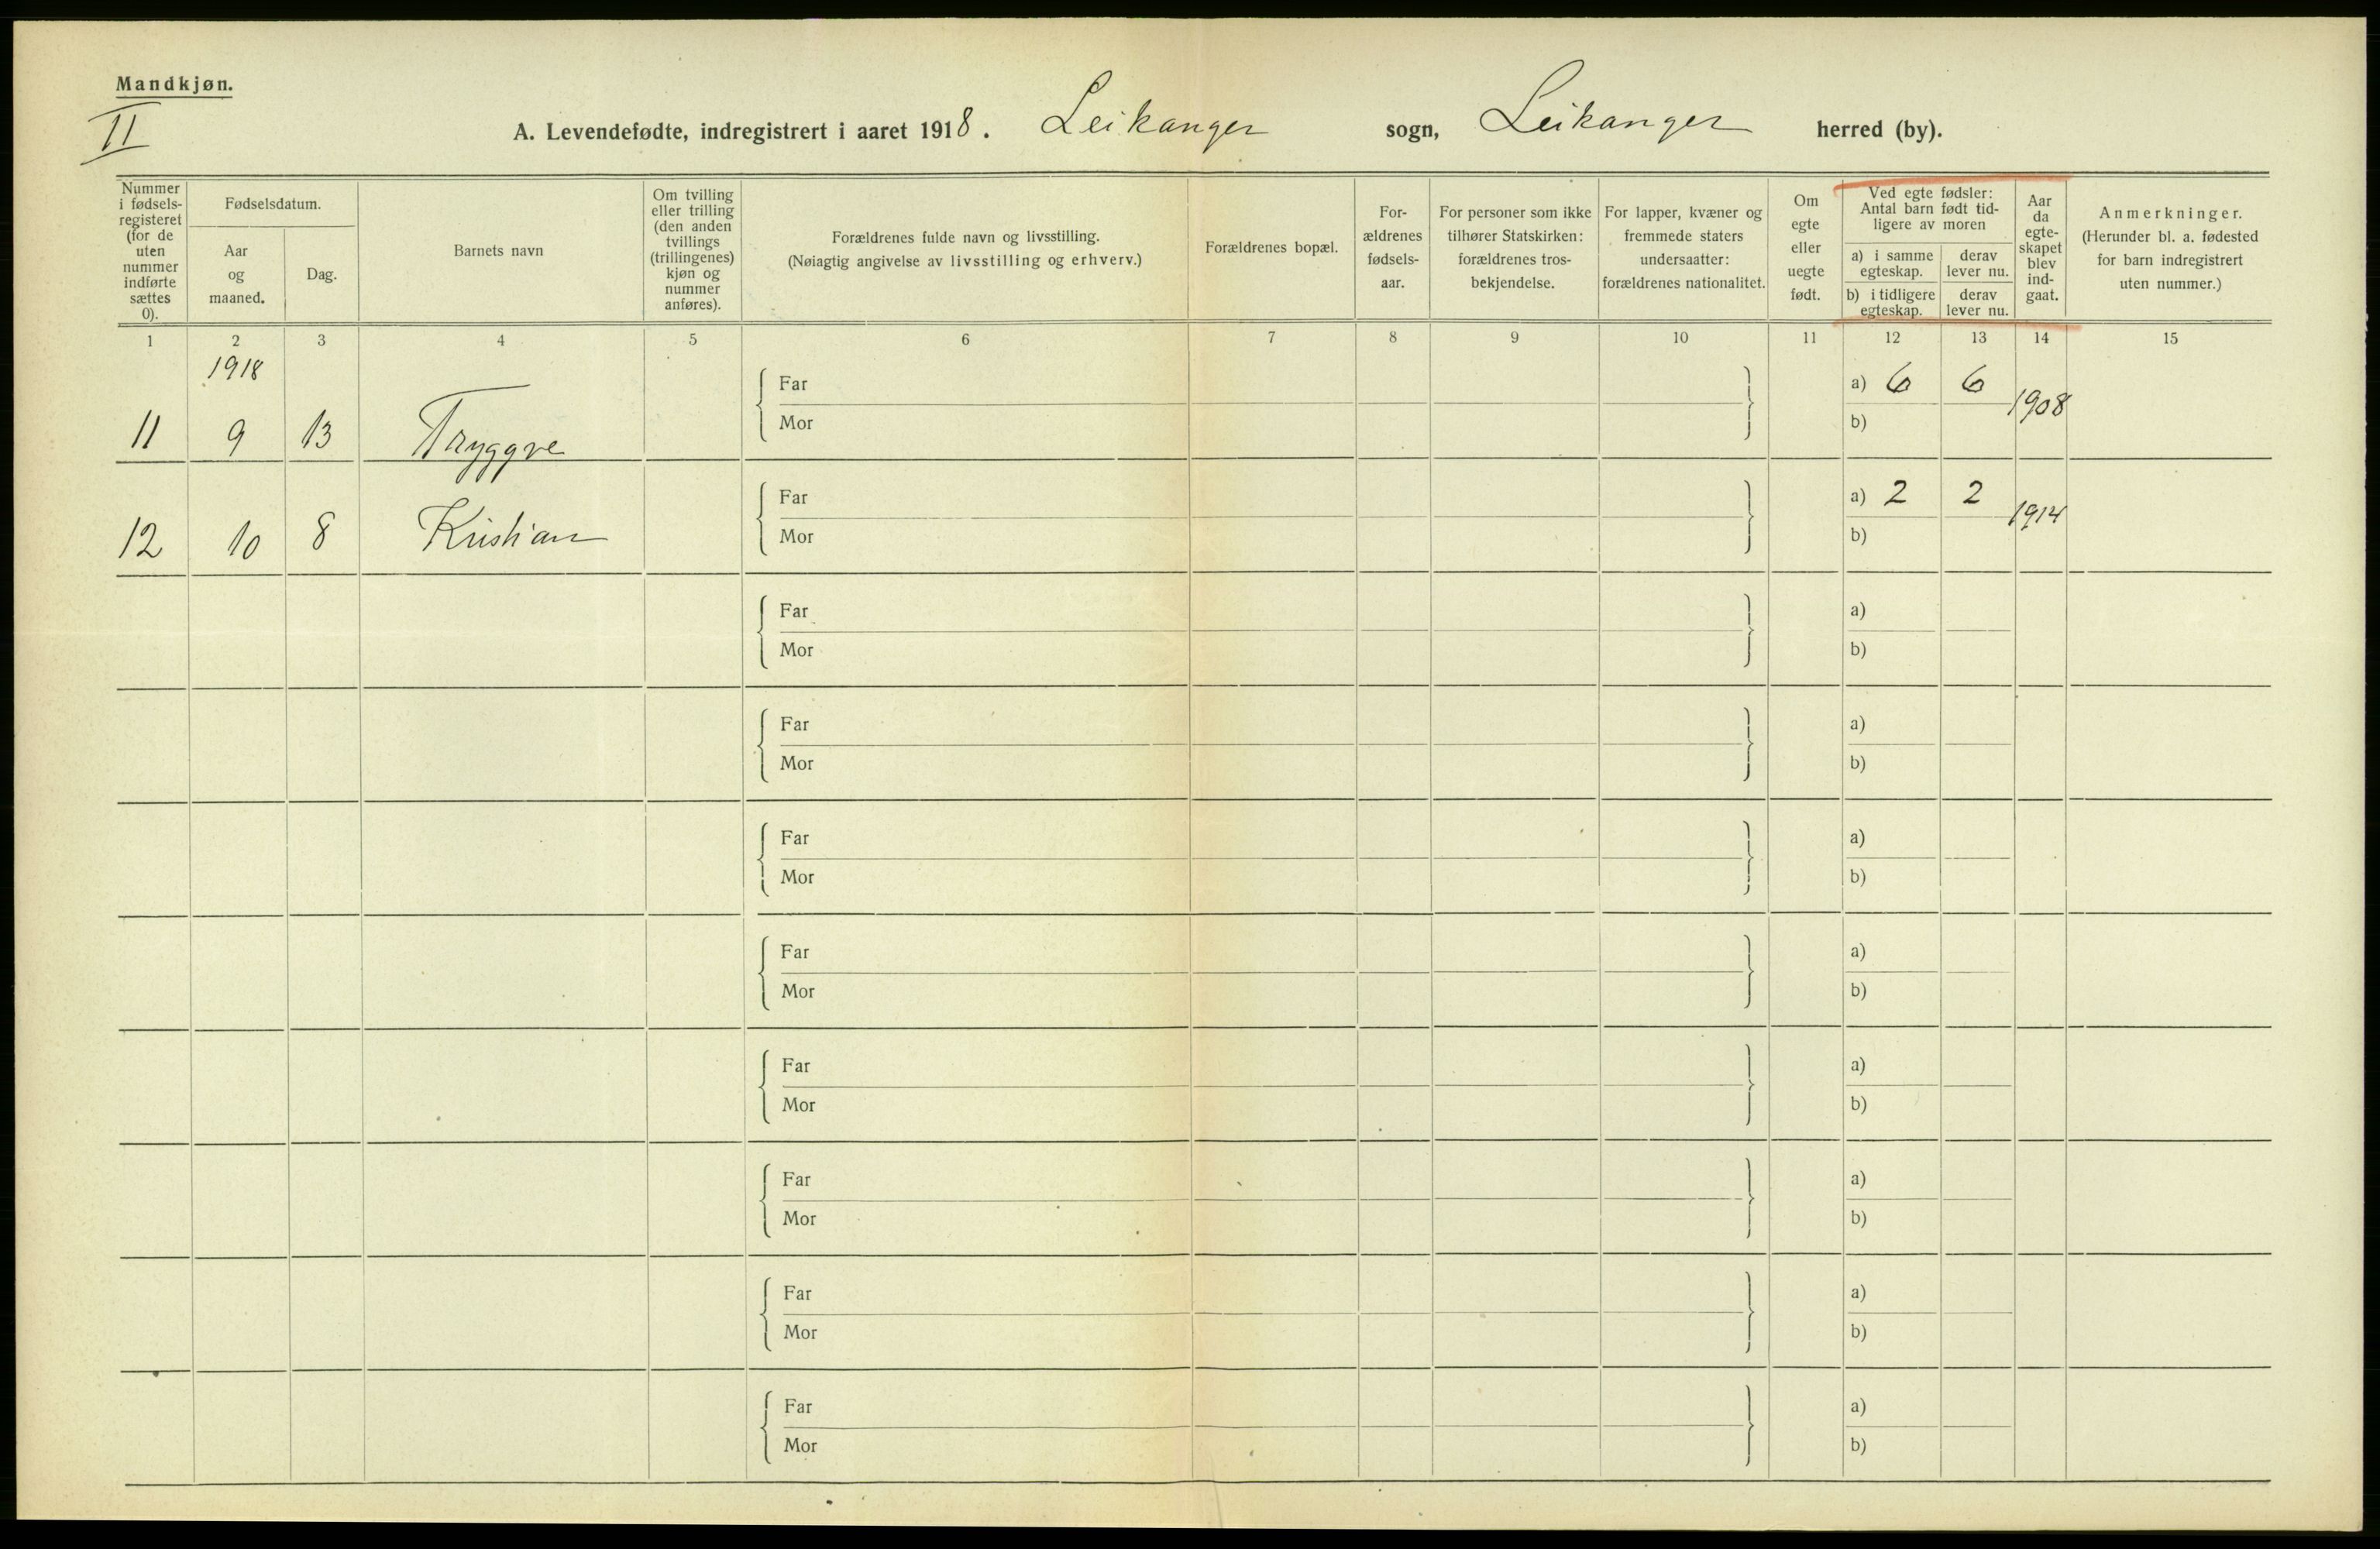 Mandkjøn.
II
A. Levendefødte, indregistrert i aaret 1918. Leikanger sogn, Leikanger herred (by).
Nummer i fødsels-registeret (for de uten nummer indførte sættes 0).
Fødselsdatum.
Aar og maaned.
Dag.
Barnets navn
Om tvilling eller trilling (den anden tvillings (trillingenes) kjøn og nummer anføres).
Forældrenes fulde navn og livsstilling.
(Nøiagtig angivelse av livsstilling og erhverv.)
Forældrenes bopæl.
For-ældrenes fødsels-aar.
For personer som ikke tilhører Statskirken: forældrenes tros-bekjendelse.
For lapper, kvæner og fremmede staters undersaatter: forældrenes nationalitet.
Om egte eller uegte født.
Ved egte fødsler:
Antal barn født tid-ligere av moren
a) i samme egteskap.
derav lever nu.
b) i tidligere egteskap.
derav lever nu.
Aar da egte-skapet blev ind-gaat.
Anmerkninger.
(Herunder bl. a. fødested for barn indregistrert uten nummer.)
1 2 3 4 5 6 7 8 9 10 11 12 13 14 15
1918
Far a) 6 6 1908
11 9 13 Tryggve
Mor b)
Far a) 2 2 1914
12 10 8 Kristian
Mor b)
Far a)
Mor b)
Far a)
Mor b)
Far a)
Mor b)
Far a)
Mor b)
Far a)
Mor b)
Far a)
Mor b)
Far a)
Mor b)
Far a)
Mor b)